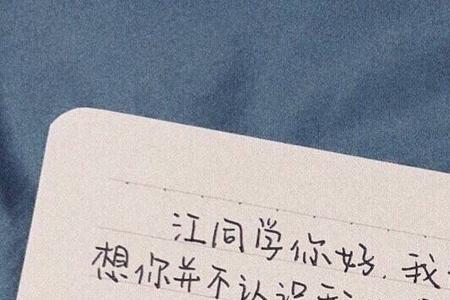 江同学你好，我
想你并不认识我